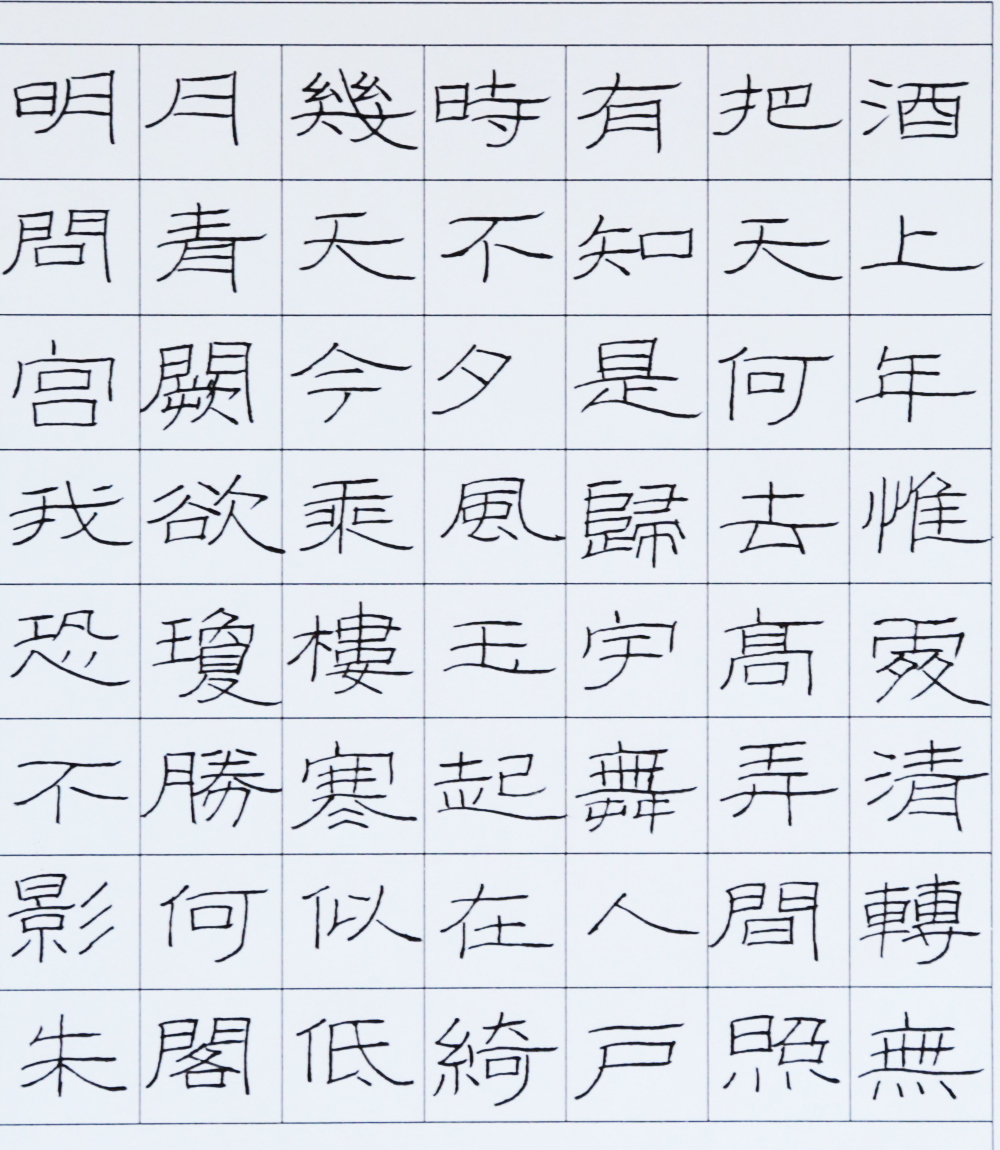 明月幾時有把酒
問青天不知天上
宫闕今夕是何年
我欲乘風歸去惟
恐瓊樓玉宇髙處
不勝寒起舞弄清
影何似在人間轉
朱閣低綺戶照無